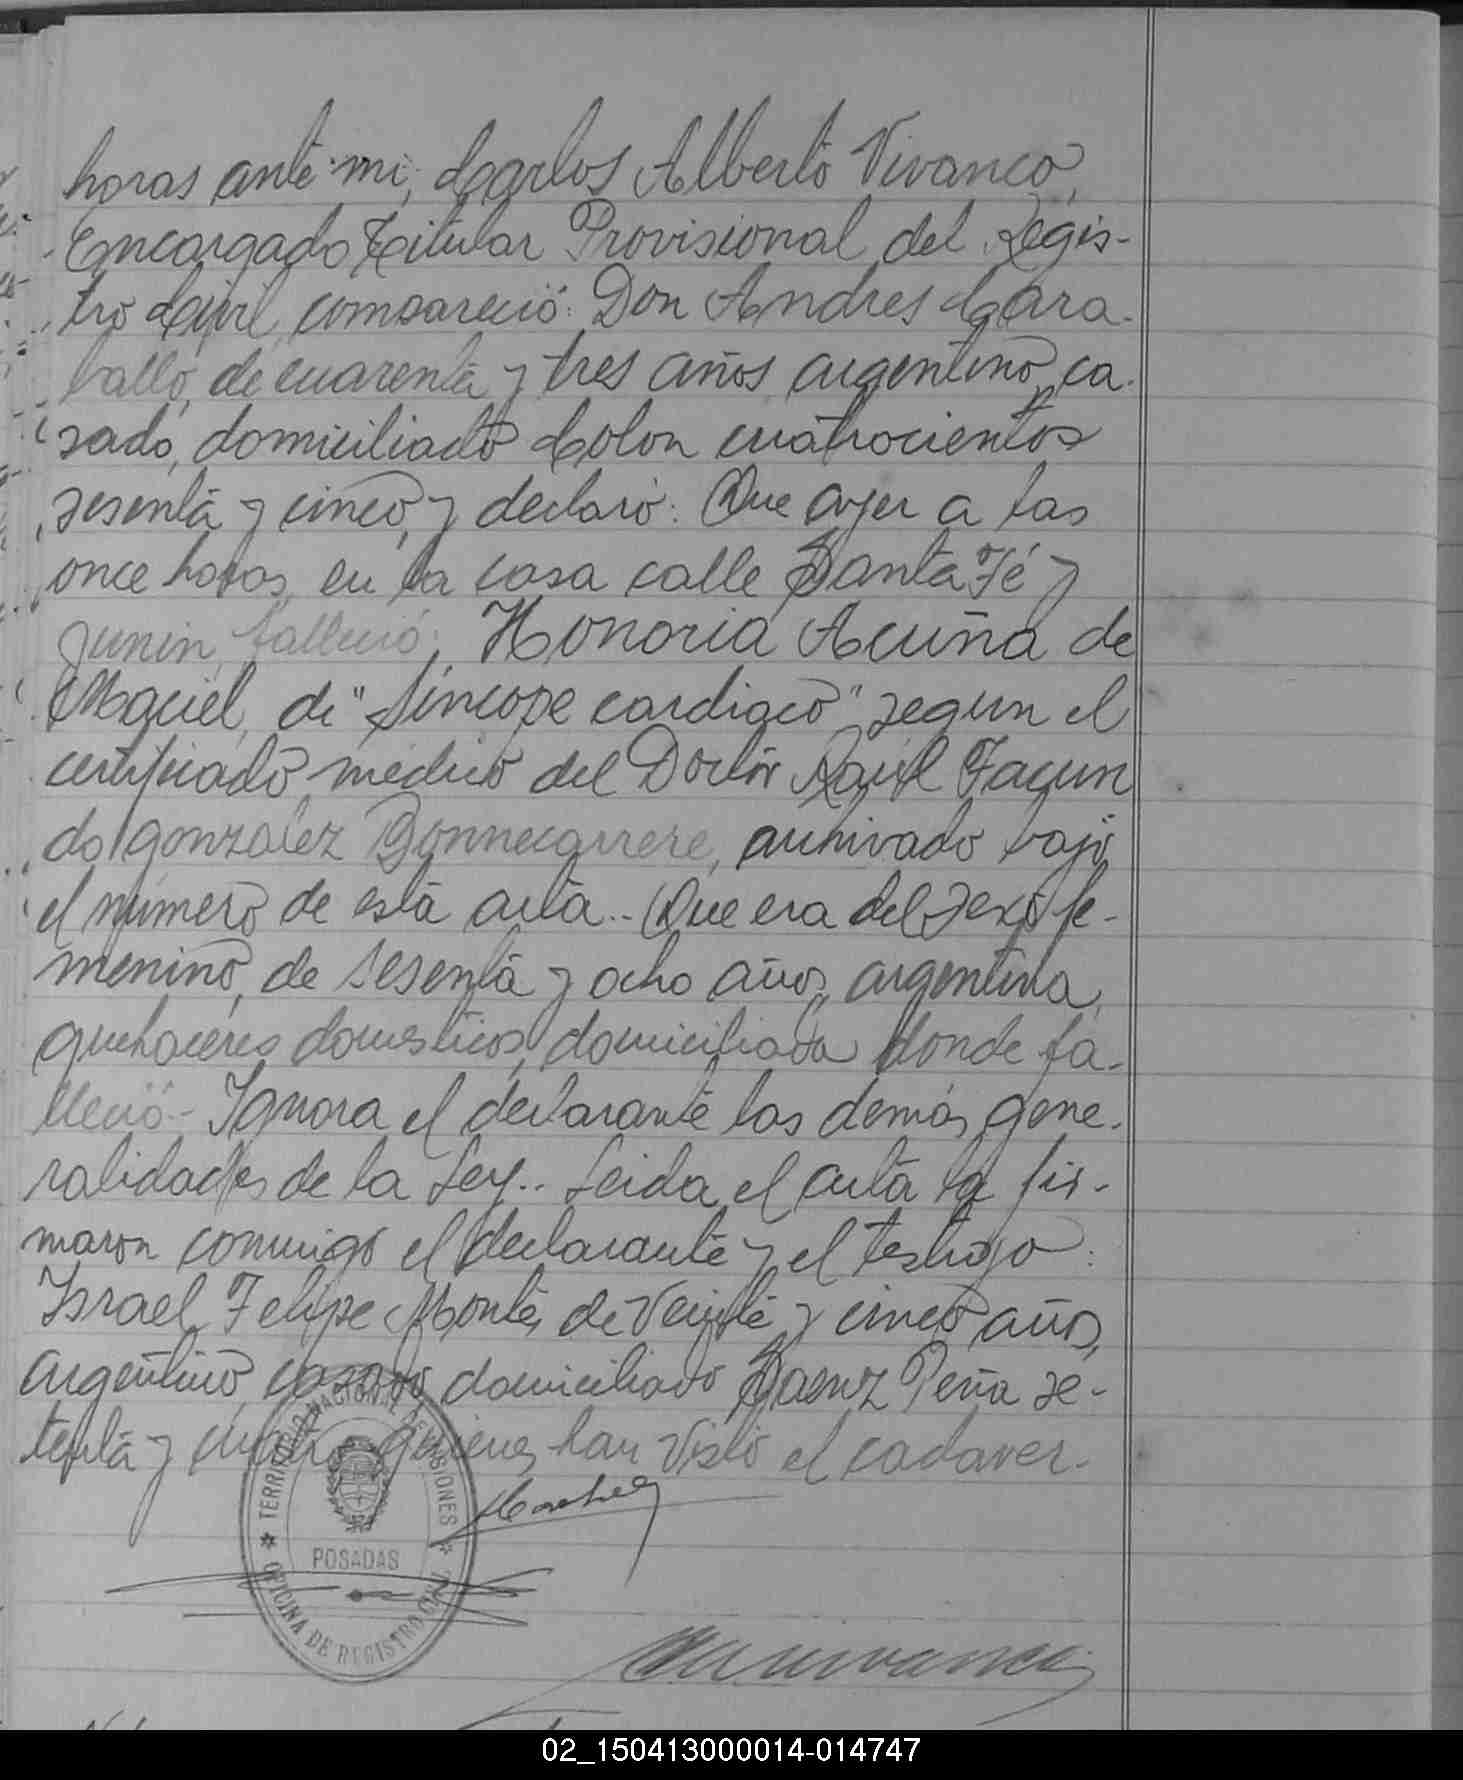 horas ante mi, Carlos Alberto Vivanco,
Encargado Titular Provisional del Regis-
tro Civil, compareció: Don Andres Cara-
ballo, de cuarenta y tres años, argentino, ca-
sado, domiciliado Colon cuatrocientos
sesenta y cinco, y declaró: Que ayer a las
once horas, en la casa calle Santa Fé y
Junin, falleció: Honoria Acuña de
Maciel, de "Síncope cardiaco", segun el
certificado médico del Doctor Raúl Facun
do Gonzalez Bonnecarrere, archivado bajo
el número de esta acta.- Que era del sexo fe-
menino, de sesenta y ocho años, argentina,
quehaceres domesticos, domiciliada donde fa-
lleció.- Ignora el declarante las demás gene-
ralidades de la Ley.- Leida el acta la fir-
maron conmigo el declarante y el testigo:
Israel Felipe Montes, de veinte y cinco años,
argentino, casado, domiciliado Saenz Peña se-
tenta y quienes han visto el cadaver.-
TERRITORIO NACIONAL DE MISIONES
POSADAS
OFICINA DE REGISTRO CIVIL
02_150413000014-014747